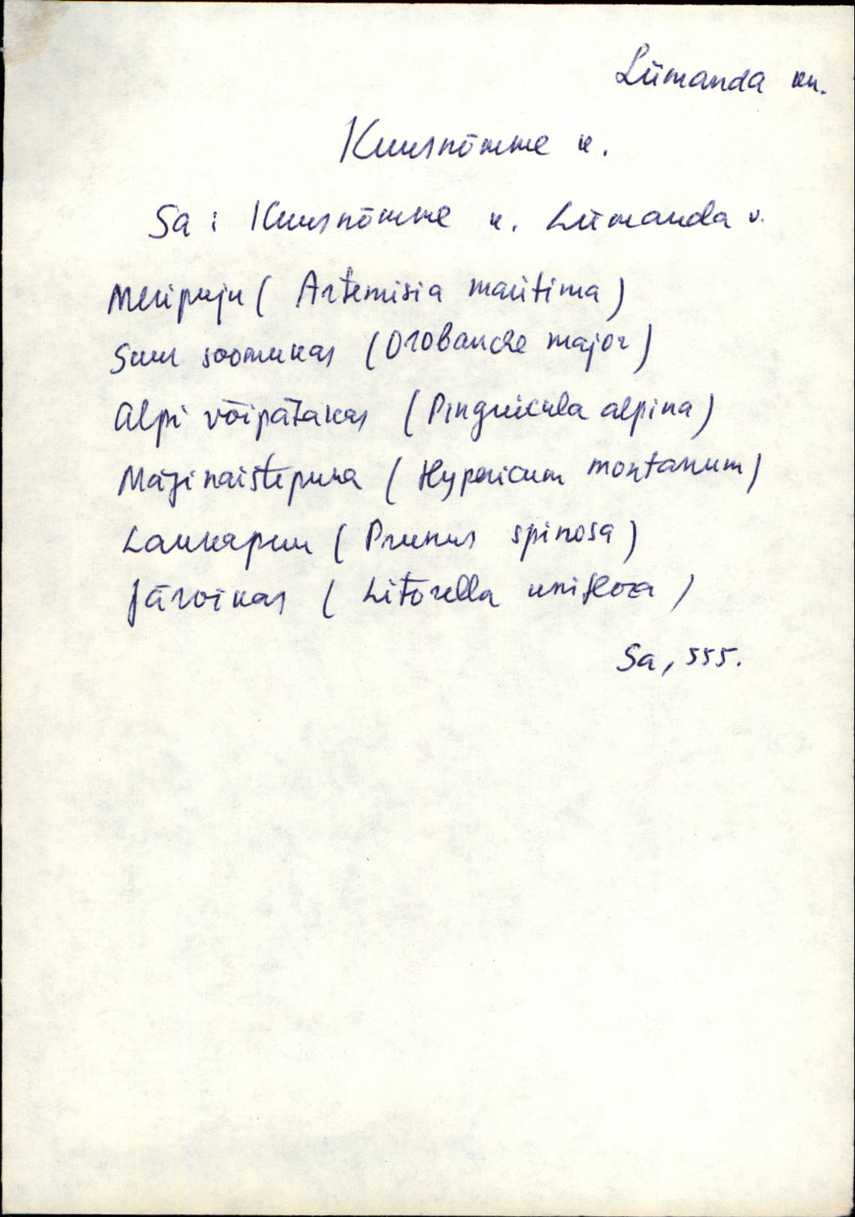 Lümanda kn.
Kuusnõmme k.
Sa: Kuusnõmme k. Lümanda v.
Meripuju (Artemisia maritima)
Suur soomukas (Orobanche major)
Alpi võipätakas (Pinguicula alpina)
Mägi naistepuna (Hypericum montanum)
Laukapuu (Prunus spinosa)
Järvikas (Litorella uniflora)
Sa, 555.